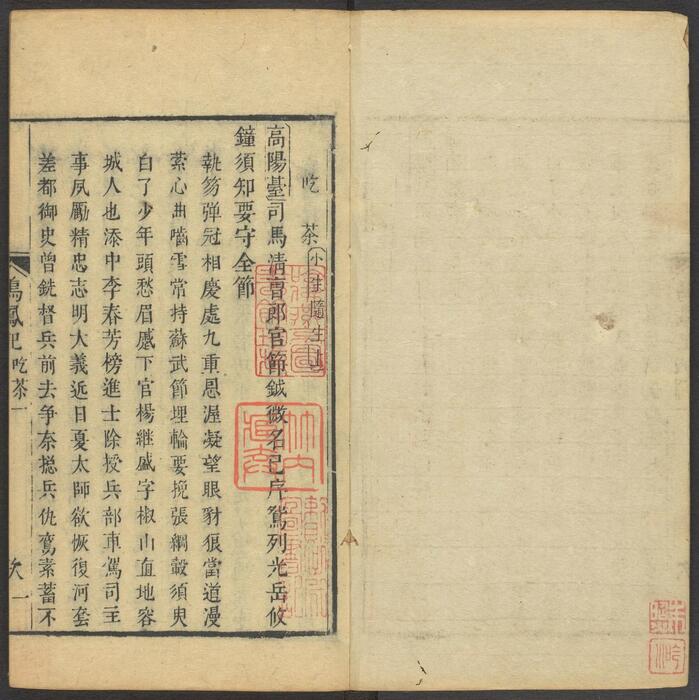 吃茶 小生隨生上
高陽臺司馬清曹郎官節鉞微名已序鴛列光岳攸
鐘須知要守全節
執笏彈冠相慶處九重恩渥凝望眼豺狼當道漫
縈心曲嚙雪常持蘇武節埋輪要挽張綱轂須臾
白了少年頭愁眉蹙下官楊繼盛字椒山直地容
城人也忝中李春芳榜進士除授兵部車駕司主
事夙勵精忠志明大義近日夏太師欲恢復河套
差都御史曾銑督兵前去爭奈摠兵仇鸞素蓄不
鳴鳳記 吃茶一